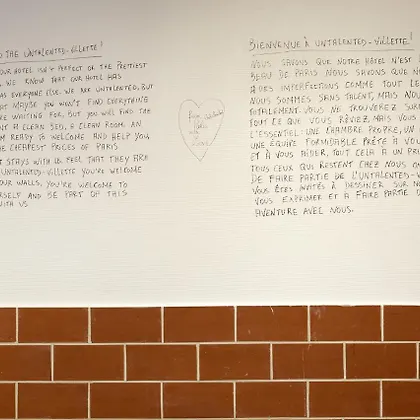 TO THE UNTALENTED-VILLETTE!
OUR HOTEL ISN'T PERFECT OR THE PRETTIEST
WE KNOW THAT OUR HOTEL HAS
AS EVERYONE ELSE. WE ARE UNTALENTED, BUT
THAT MAYBE YOU WON'T FIND EVERYTHING
ARE WAITING FOR, BUT YOU WILL FIND THE
A CLEAN BED, A CLEAN ROOM, AN
READY TO WELCOME AND HELP YOU,
CHEAPEST PRICES OF PARIS
STAYS WITH US FEEL THAT THEY ARE
UNTALENTED-VILLETTE YOU'RE WELCOME
OUR WALLS, YOU'RE WELCOME TO
AND BE PART OF THIS
WITH US
BIENVENUE À UNTALENTED-VILLETTE!
NOUS SAVONS QUE NOTRE HÔTEL N'EST
BEAU DE PARIS NOUS SAVONS QUE
DES IMPERFECTIONS COMME TOUT LE
NOUS SOMMES SANS TALENT, MAIS NOUS
TOTALEMENT. VOUS NE TROUVEREZ
TOUT CE QUE VOUS RÊVIEZ, MAIS VOUS
L'ESSENTIEL: UNE CHAMBRE PROPRE, UN
UNE ÉQUIPE FORMIDABLE PRÊTE À
ET À VOUS AIDER, TOUT CELA À UN
TOUS CEUX QUI RESTENT CHEZ NOUS
DE FAIRE PARTIE DE L'UNTALENTED-
VOUS ÊTES INVITÉS À DESSINER SUR
VOUS EXPRIMER ET À FAIRE PARTIE
AVENTURE AVEC NOUS.